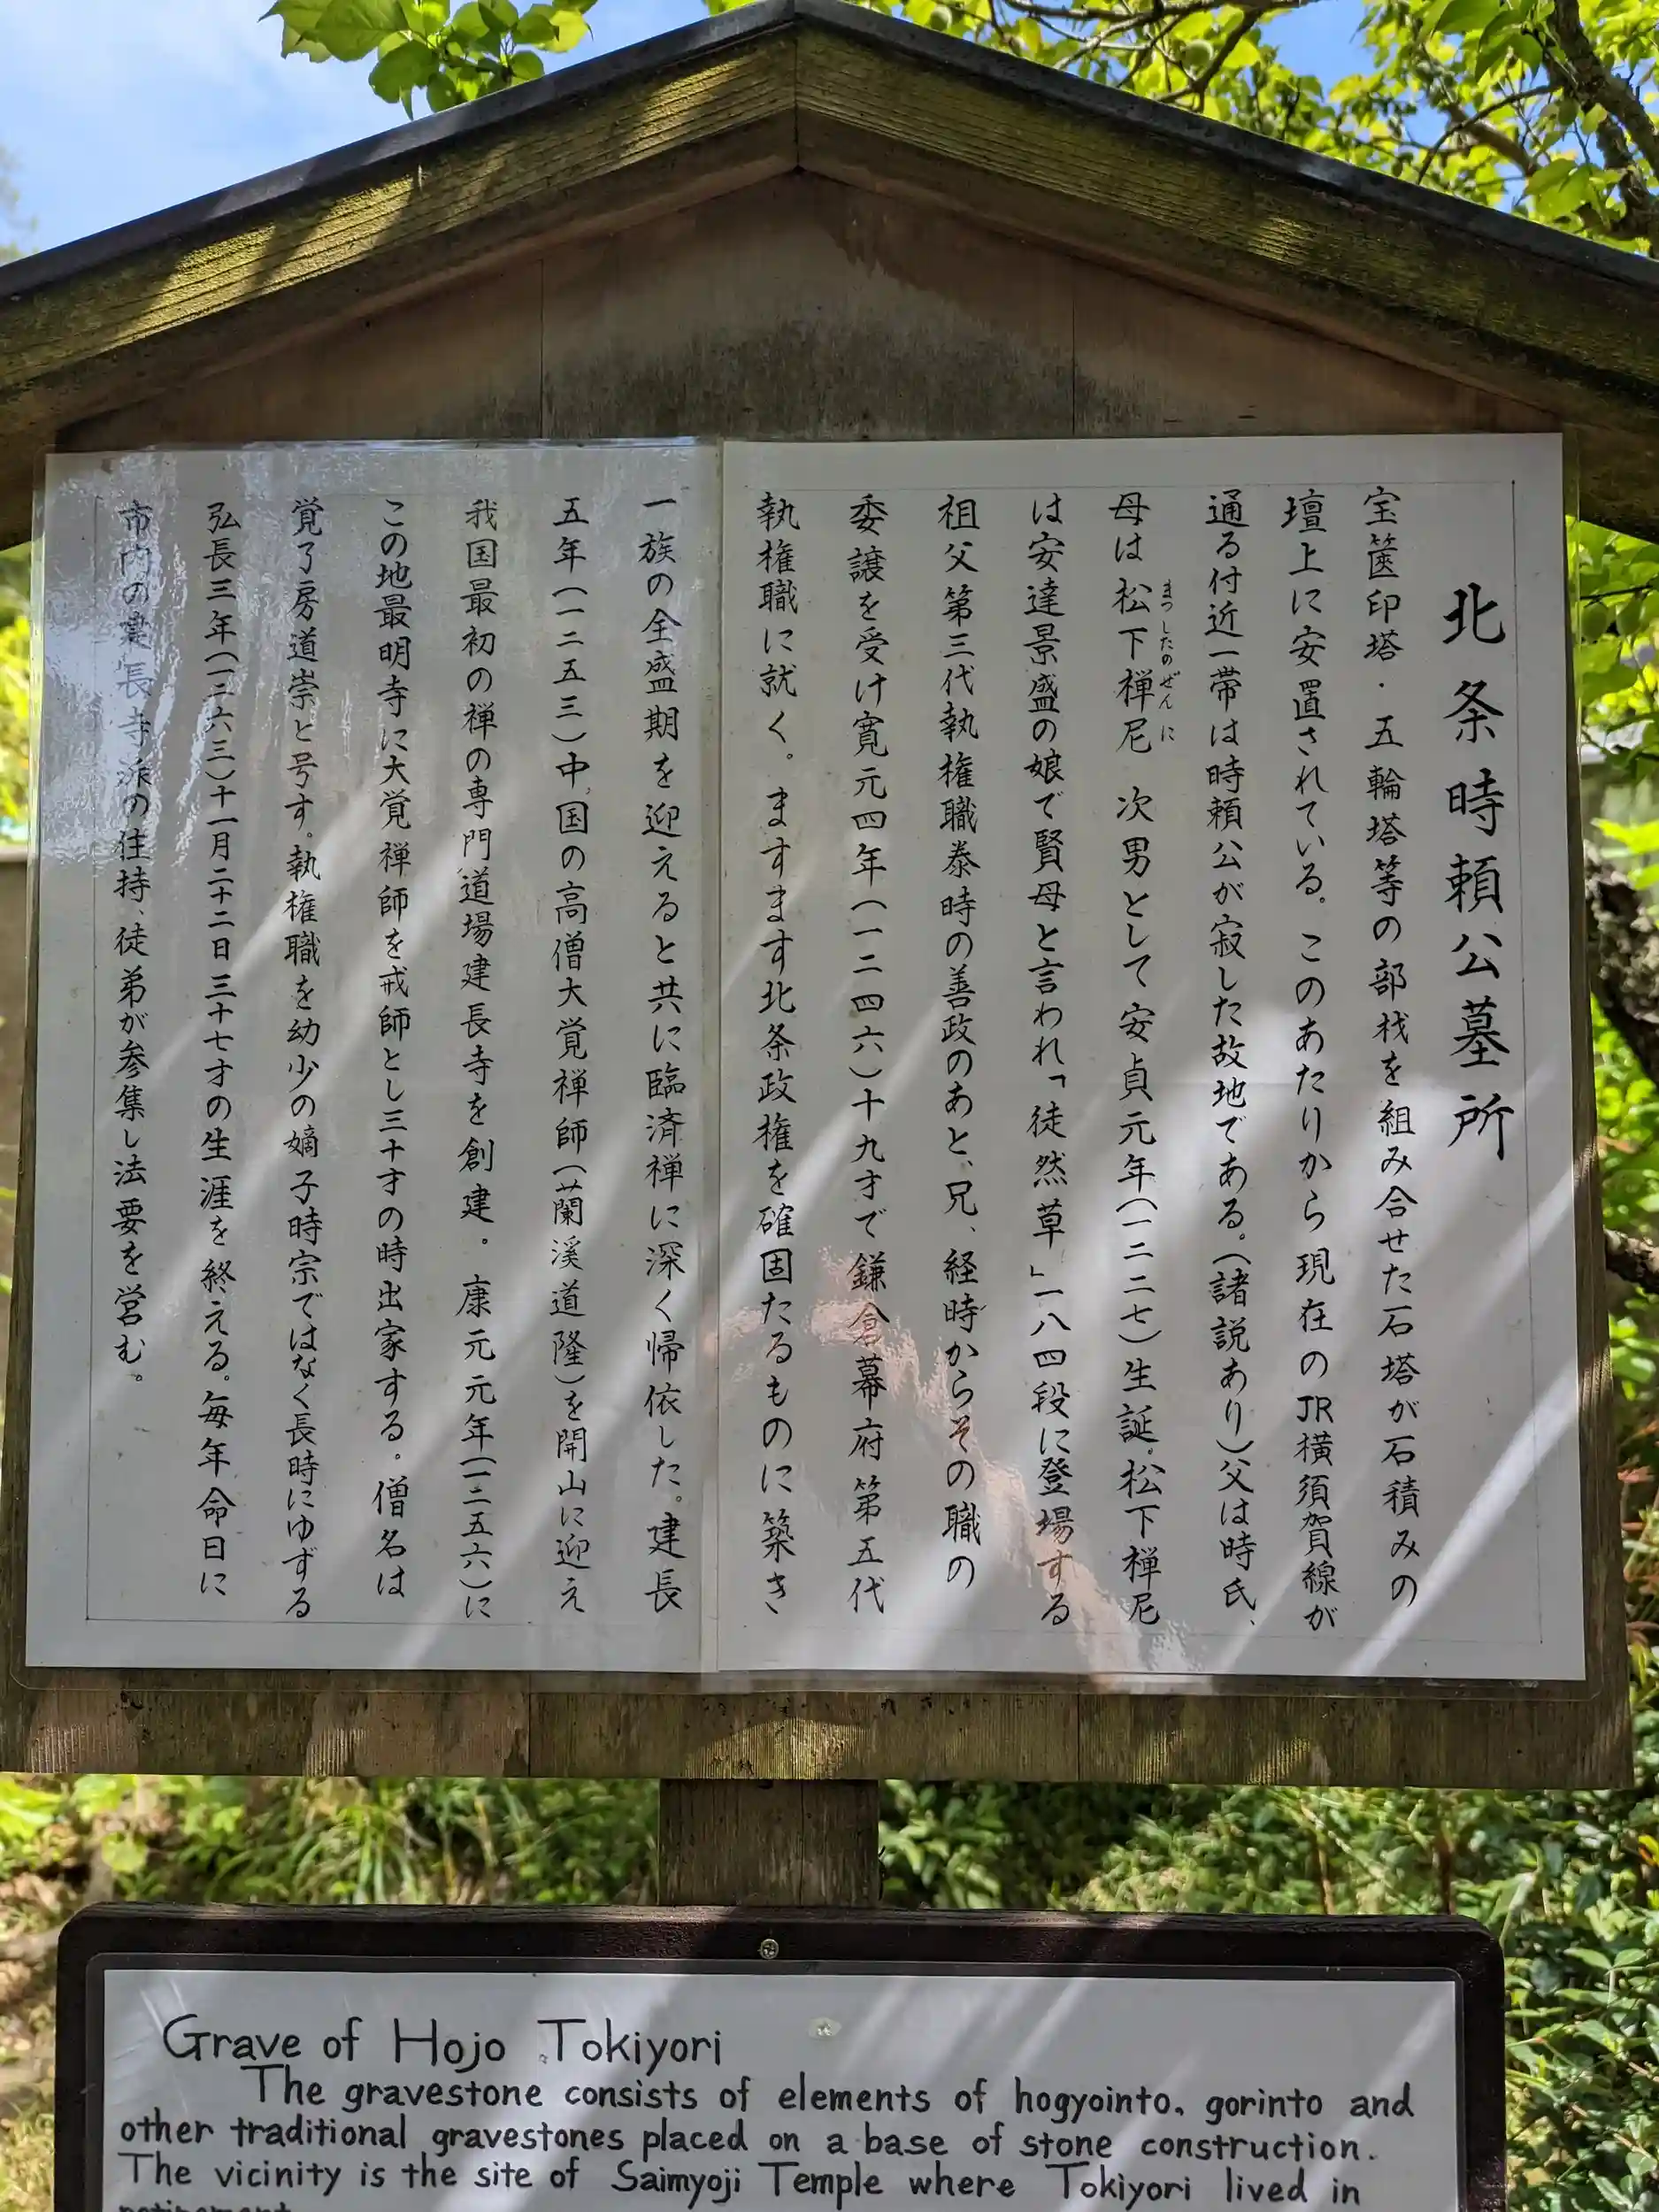 北条時頼公墓所
宝篋印塔・五輪塔等の部材を組み合せた石塔が石積みの
壇上に安置されている。このあたりから現在のJR横須賀線が
通る付近一帯は時頼公が寂した故地である。(諸説あり)父は時氏、
母は松下禅尼 次男として安貞元年(一二二七)生誕。松下禅尼
まつしたのぜんに
は安達景盛の娘で賢母と言われ「徒然草」一八四段に登場する
祖父第三代執権職泰時の善政のあと、兄、経時からその職の
委譲を受け寛元四年(一二四六)十九才で鎌倉幕府第五代
執権職に就く。ますます北条政権を確固たるものに築き
一族の全盛期を迎えると共に臨済禅に深く帰依した。建長
五年(一二五三)中国の高僧大覚禅師(蘭溪道隆)を開山に迎え
我国最初の禅の専門道場建長寺を創建。康元元年(一二五六)に
この地最明寺に大覚禅師を戒師とし三十才の時出家する。僧名は
覚了房道崇と号す。執権職を幼少の嫡子時宗ではなく長時にゆずる
弘長三年(一二六三)十一月二十二日三十七才の生涯を終える。毎年命日に
市内の建長寺派の住持、徒弟が参集し法要を営む。
Grave of Hojo Tokiyori
The gravestone consists of elements of hogyointo, gorinto and
other traditional gravestones placed on a base of stone construction.
The vicinity is the site of Saimyoji Temple where Tokiyori lived in